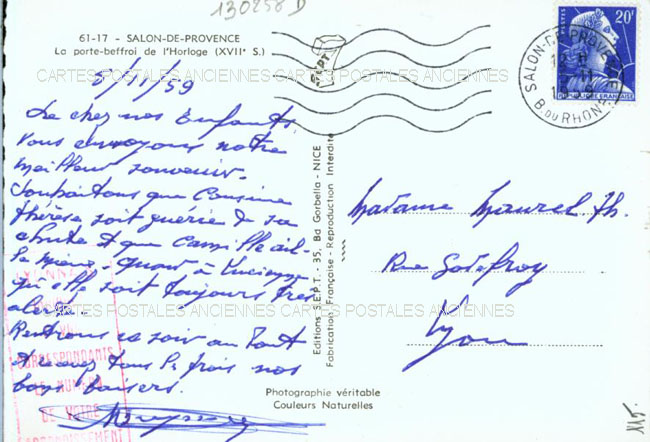 130258 D
61-17 - SALON-DE-PROVENCE
La porte-beffroi de l'Horloge (XVIIe S.)
CARTES POSTALES ANCIENNES CARTES POSTALES ANCIENNES
SEPT
POSTES 20F
REPUBLIQUE FRANÇAISE
SALON-DE-PROVENCE
B. DU RHONE
5/11/59
De chez nos Enfants
vous envoyons notre
meilleur souvenir.
Souhaitons que Cousine
thérèse soit guérie de sa
chute & que Camille ail-
le mieux - quant à Lucienne
qu'elle soit toujours très
alerte.
Rentrons ce soir au
Recevez tous les trois nos
bons baisers.
Madame Maurel Th.
Rue Godefroy
Lyon
Editions S.E.P.T. - 35, Bd Gorbella - NICE
Fabrication Française - Reproduction Interdite
CARTES POSTALES ANCIENNES CARTES POSTALES ANCIENNES
CORRESPONDANTS
LE NUMERO
DE VOTRE
ARRONDISSEMENT
Photographie véritable
Couleurs Naturelles
115.